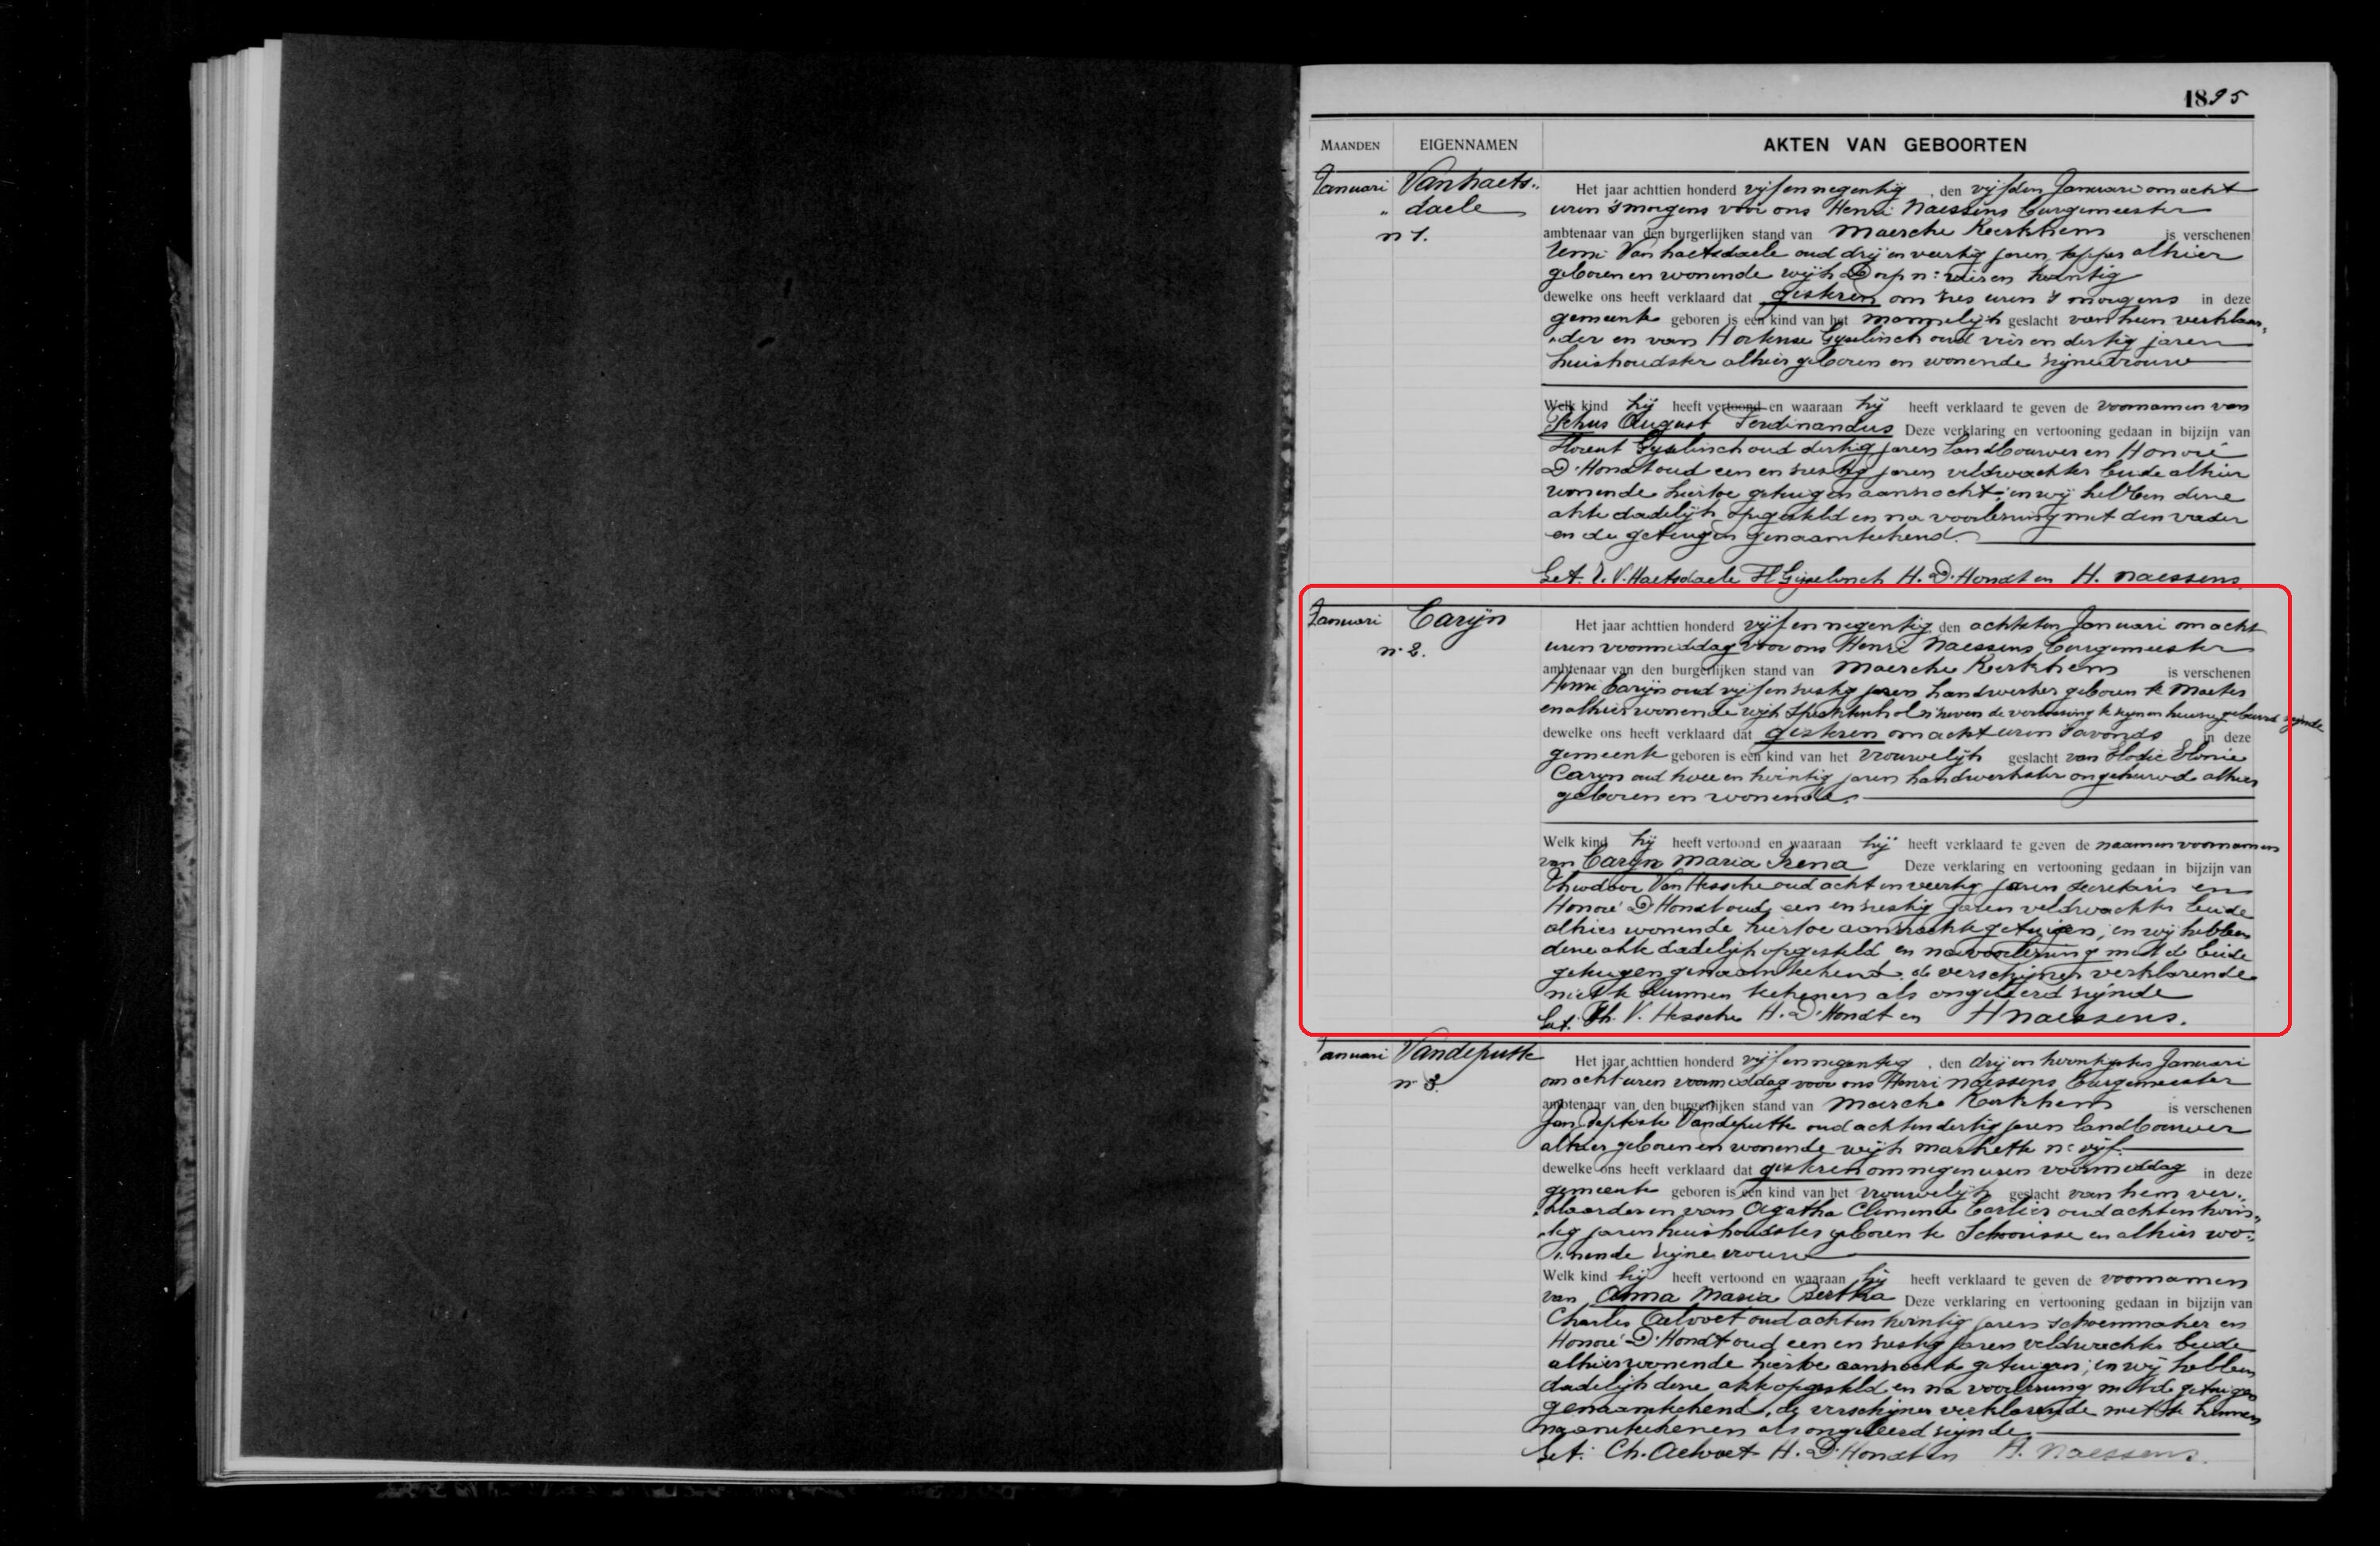 1895
MAANDEN EIGENNAMEN AKTEN VAN GEBOORTEN
Januari Vanhaets„
„ daele
n 1.
Het jaar achttien honderd vijf en negentig, den vijfden Januari om acht
uren 's morgens voor ons Henri Naessens burgemeester
ambtenaar van den burgerlijken stand van Maercke Kerkhem is verschenen
Remi Vanhaetsdaele oud drij en veertig jaren tapper alhier
geboren en wonende wijk Dorp n:
dewelke ons heeft verklaard dat gisteren om zes uren 's morgens in deze
gemeente geboren is een kind van het mannelijk geslacht van hem verklaar„
„der en van Hortense Gyselinck oud vier en dertig jaren
huishoudster alhier geboren en wonende zijne vrouw
Welk kind hij heeft vertoond en waaraan hij heeft verklaard te geven de voornamen van
Petrus August Ferdinandus Deze verklaring en vertooning gedaan in bijzijn van
Florent Gyselinck oud dertig jaren landbouwer en Honoré
D'Hondt oud een en zestig jaren veldwachter beide alhier
wonende hiertoe getuigen aanzocht; en wij hebben deze
akte dadelijk opgesteld en na voorlezing met den vader
en de getuigen genaamteekend.
Get. R. V. Haetsdaele Fl Gyselinck H. D'Hondt en H. Naessens
Januari Caryn
n. 2.
Het jaar achttien honderd vijf en negentig, den achtsten Januari om acht
uren voormiddag voor ons Henri Naessens, burgemeester
ambtenaar van den burgerlijken stand van Maercke Kerkhem is verschenen
Henri Caryn oud vijf en zestig jaren handwerker geboren te Maeter
en alhier wonende wijk zeven de verlossing te zijnen huize gebeurd zijnde
dewelke ons heeft verklaard dat gisteren om acht uren 's avonds in deze
gemeente geboren is een kind van het vrouwelijk geslacht van Elodie Leonie
Caryn oud twee en twintig jaren handwerkster ongehuwd alhier
geboren en wonende.
Welk kind hij heeft vertoond en waaraan hij heeft verklaard te geven de naam en voornamen
van Caryn Maria Irena Deze verklaring en vertooning gedaan in bijzijn van
Theodoor Van Hessche oud acht en veertig jaren secretaris en
Honoré D'Hondt oud een en zestig jaren veldwachter beide
alhier wonende hiertoe aanzochte getuigen; en wij hebben
deze akte dadelijk opgesteld en na voorlezing met de beide
getuigen genaamteekend, de verschijner verklarende
niet te kunnen teekenen als ongeleerd zijnde
Get. Th. V. Hessche H. D'Hondt en H Naessens.
Januari Vandeputte
n. 3.
Het jaar achttien honderd vijf en negentig, den drij en twintigsten Januari
om acht uren voormiddag voor ons Henri Naessens burgemeester
ambtenaar van den burgerlijken stand van Maercke Kerkhem is verschenen
Jan Baptiste Vandeputte oud acht en dertig jaren landbouwer
alhier geboren en wonende wijk Markette n: vijf.
dewelke ons heeft verklaard dat gisteren om negen uren voormiddag in deze
gemeente geboren is een kind van het vrouwelijk geslacht van hem ver„
„klaarder en van Agatha Clemence Carlier oud acht en twin„
„tig jaren huishoudster geboren te Schoorisse en alhier wo„
„nende zijne vrouw
Welk kind hij heeft vertoond en waaraan hij heeft verklaard te geven de voornamen
van Anna Maria Bertha Deze verklaring en vertooning gedaan in bijzijn van
Charles Aelvoet oud acht en twintig jaren schoenmaker en
Honoré D'Hondt oud een en zestig jaren veldwachter beide
alhier wonende hiertoe aanzochte getuigen; en wij hebben
dadelijk deze akte opgesteld en na voorlezing met de getuigen
genaamteekend, de verschijner verklarende niet te kunnen
naamteekenen als ongeleerd zijnde.
Get. Ch. Aelvoet H. D'Hondt en H. Naessens.